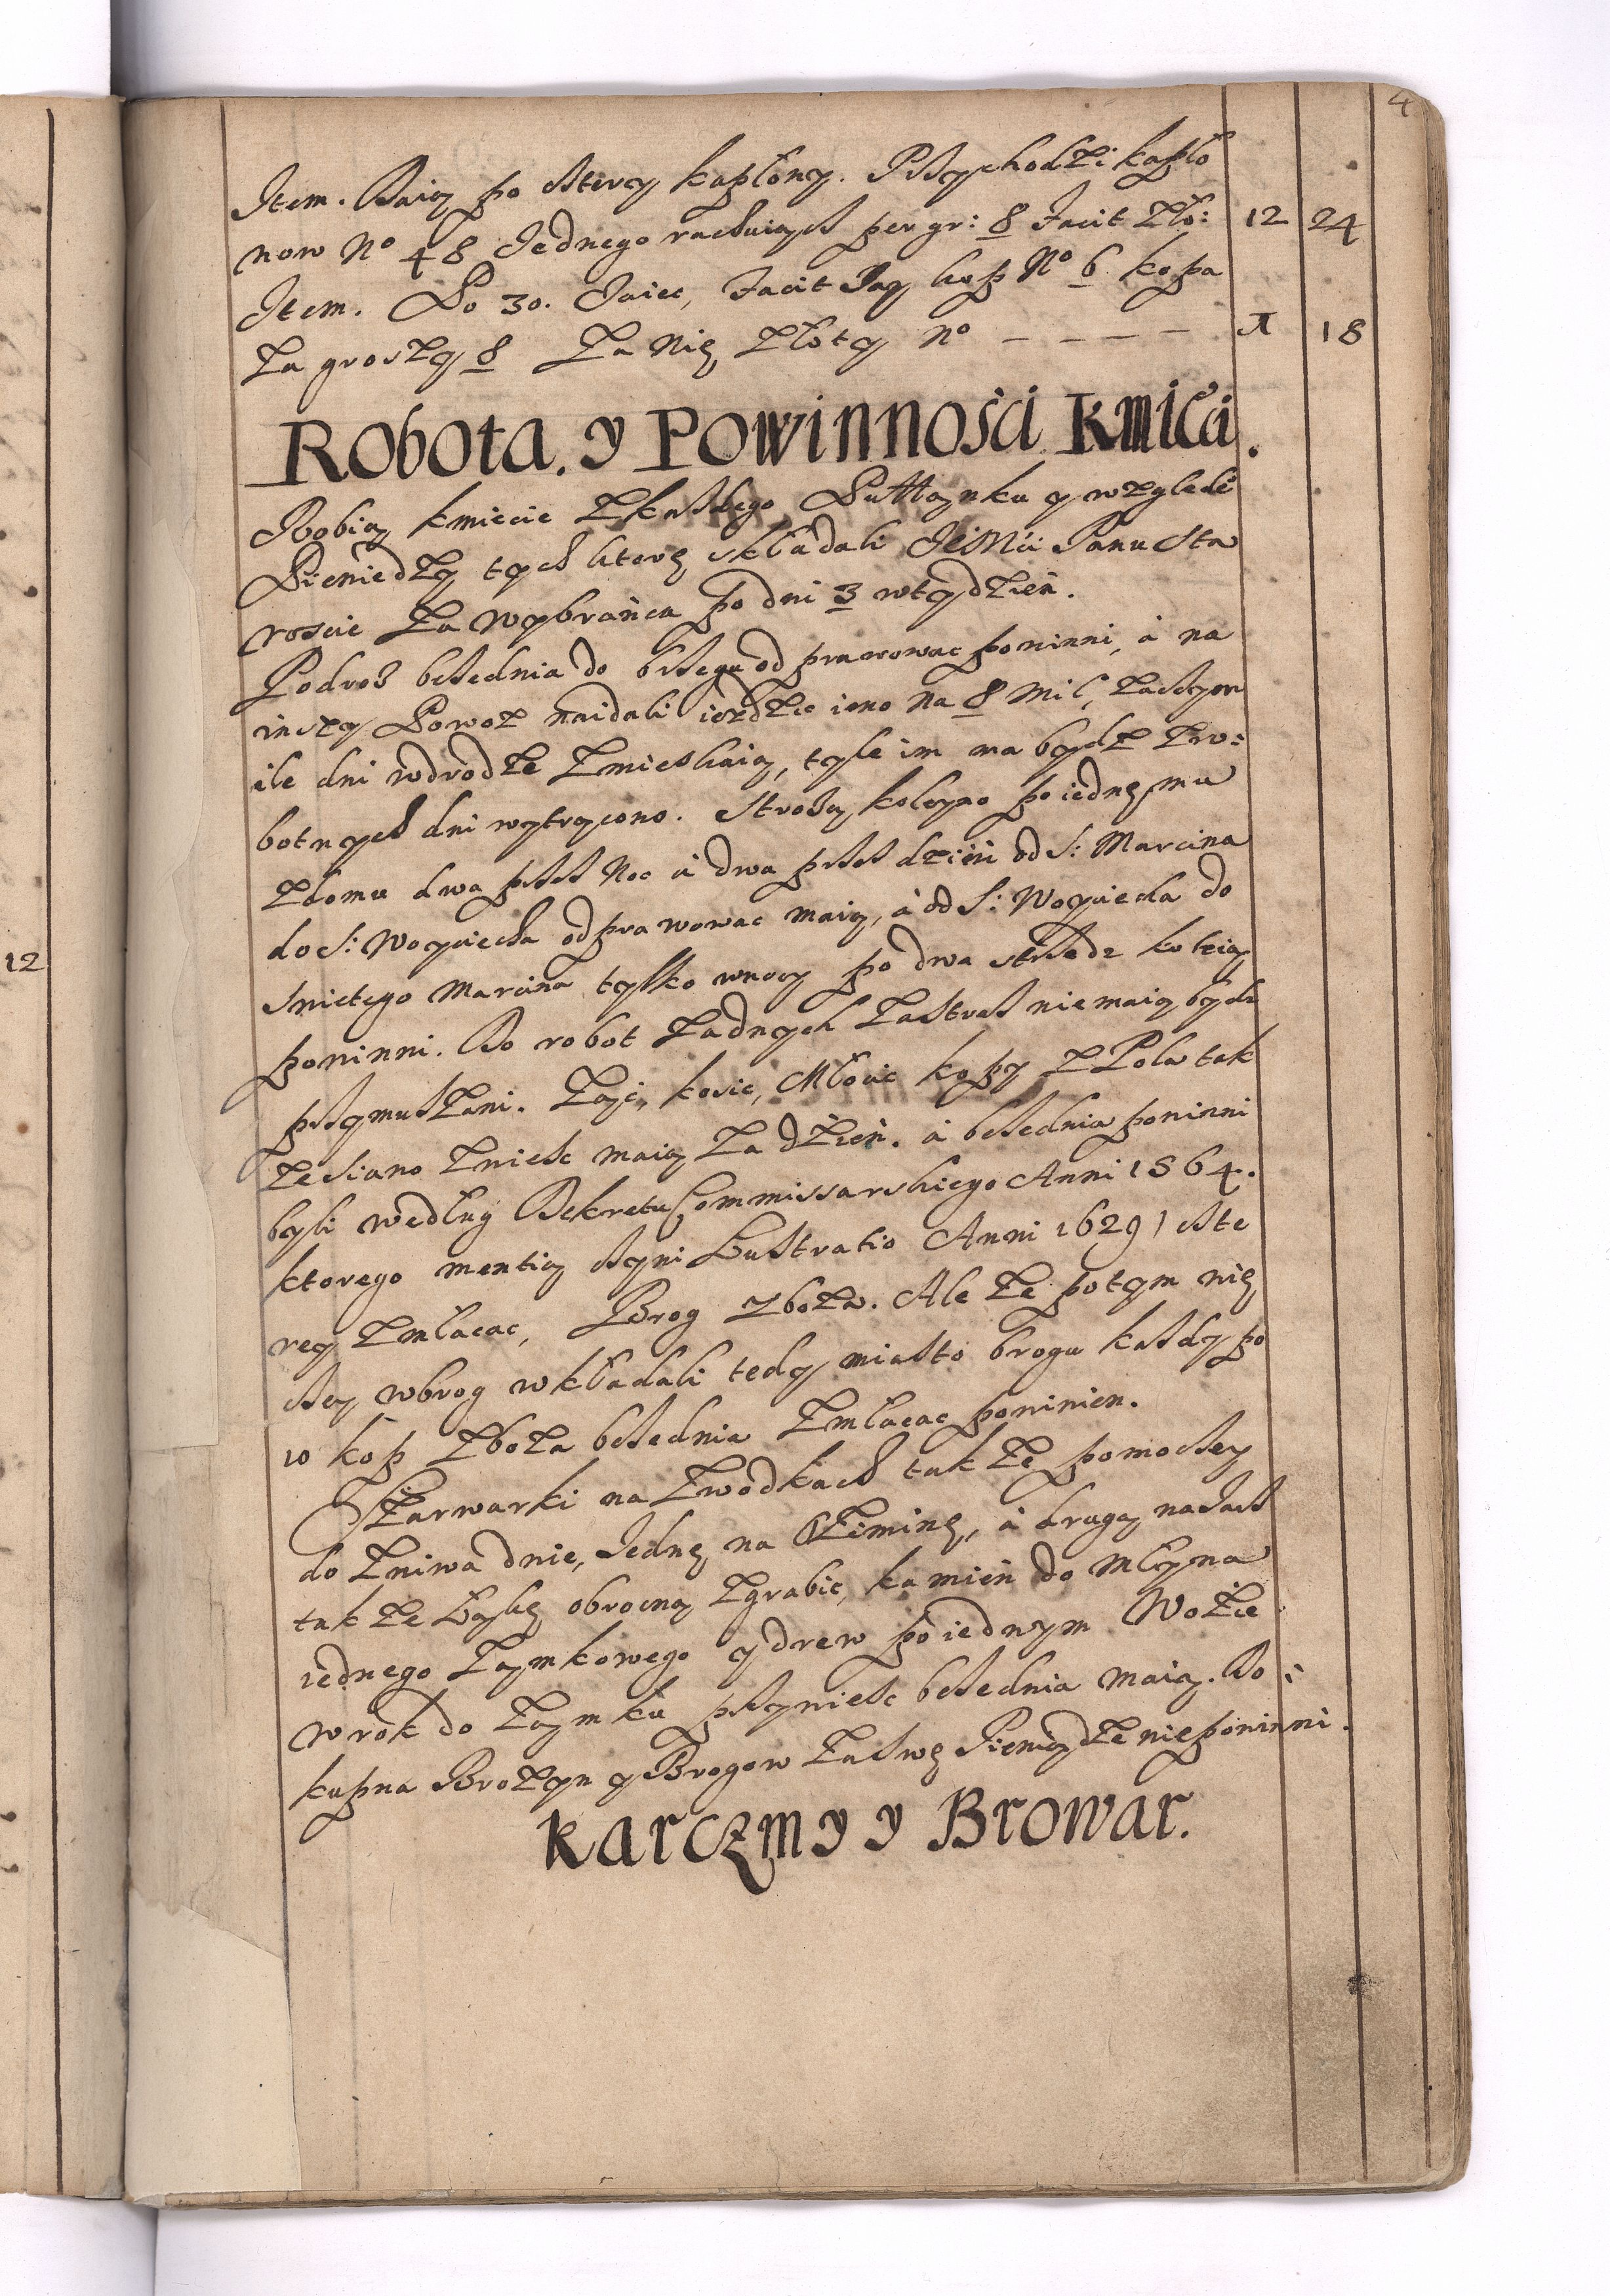 4
Item. Daią po cztery kapłony. Przychodzi kapło
now No 48 Jednego rachuiącz per gr: 8 Facit Zło: 12 24
Item. Po 30. Jaiec, Facit Jay kop No 6 kopa
Za groszy 8 Za Nię Złoty No - - - - 1 18
Robota. y Powinności Kmieci.
Robią kmiecie Zkazdego Puttzynku y wzglede
Pieniędzy tych które składali JeMci Panu Sta
roscie Za Wybrańca po dni 3 wtydzień.
Podroz bczednia do brzegu odprawowac powinni, á na
inszy Powoz naidali iezdzic ieno Na 8 Mil, zaczym
ile dni wdrodze Zmieszkaią, tyle im ma bydz Zro:
botnych dni wytrącono. Strozą koleyno po iednemu
Zdomu dwa przez Noc á dwa przez dzień od S: Marcina
do S: Woyciecha odprawowac maią, á od S: Woyciecha do
Swietego Marcina tylko wnocy po dwa strzedz koleią
powinni. Do robot Zadnych Zastraz nie maią bydz
przymuszani. Ząć, kosic, Młocic kopy Z Pola tak
Ze siano Zniesc maią Za dzień. á bczednia powinni
byli według Dekretu Commissarskiego Anni 1564.
ktorego mentią czyni Lustratio Anni 1629 czte
rey Zmłacac, Brog Zboża. Ale Ze potym nie
Az wbrog wkładali tedy miasto brogu kazdy po
10 kop Zboza bczednia Zmłacac powinien.
Szarwarki na Zwodkach takze pomoczey
do Zniwa dnie, Jednę na Oziminę, á drugą na Jarz
takze Łąkę obroczną Zgrabic, kamień do Młyna
iednego Zamkowego y drew po iednym Wozie
w rok do Zamku przyniesc bczednia maią. Do:
kupna Brozyn y Brogow Za swe Pieniądze niepowinni.
Karczmy y Browar.
12